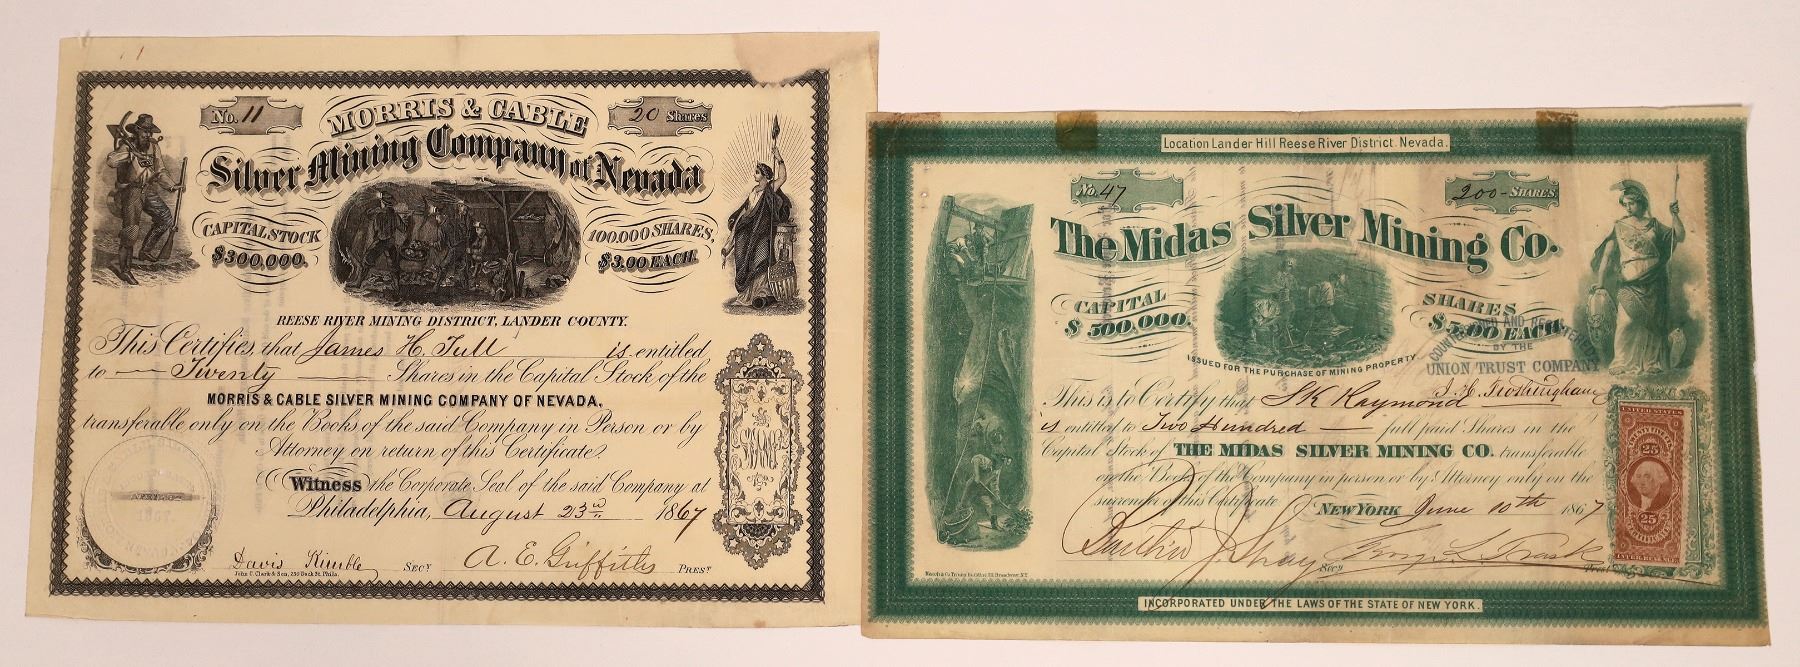 No. 11
MORRIS & CABLE
20 Shares
Silver Mining Company of Nevada
CAPITAL STOCK
$300,000.
100.000 SHARES,
$3.00 EACH.
REESE RIVER MINING DISTRICT, LANDER COUNTY.
This Certifies, that James H. Tull is entitled
to Twenty Shares in the Capital Stock of the
MORRIS & CABLE SILVER MINING COMPANY OF NEVADA,
transferable only on the Books of the said Company in Person or by
Attorney on return of this Certificate.
Witness the Corporate Seal of the said Company at
Philadelphia, August 23rd 1867
1867.
Davis Kimble SECY
A. E. Griffitts PREST
John C. Clark & Son, 230 Dock St. Phila.
Location Lander Hill Reese River District. Nevada.
No. 47
200 - SHARES
The Midas Silver Mining Co.
CAPITAL
$500,000.
SHARES
$5.00 EACH
ISSUED FOR THE PURCHASE OF MINING PROPERTY
COUNTERSIGNED AND REGISTERED
BY THE
UNION TRUST COMPANY
J. H. Frothingham
This is to Certify that S K Raymond
is entitled to Two Hundred full paid Shares in the
Capital Stock of THE MIDAS SILVER MINING CO. transferable
on the Books of the Company in person or by Attorney only on the
surrender of this Certificate
NEW YORK June 10th 1867
Secy
Prest
UNITED STATES
25 25
CERTIFICATE
INTER. REVENUE
INCORPORATED UNDER THE LAWS OF THE STATE OF NEW YORK.